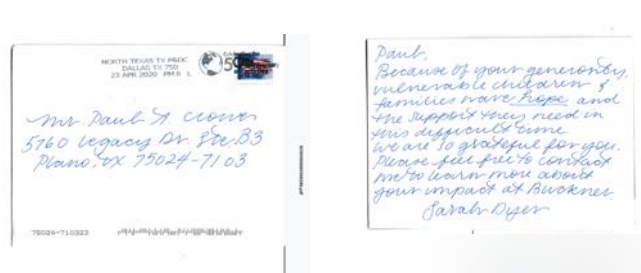 NORTH TEXAS TX P&DC
DALLAS TX 750
23 APR 2020 PM 8 L
Mr. Paul A.
5760 Legacy Dr. Ste. B3
Plano, TX 75024-7103
75024-710323
Paul,
Because of your generosity,
vulnerable children &
families have hope and
the support they need in
this difficult time.
We are so grateful for you.
Please feel free to contact
me to learn more about
your impact at Buckner.
Sarah Dyer